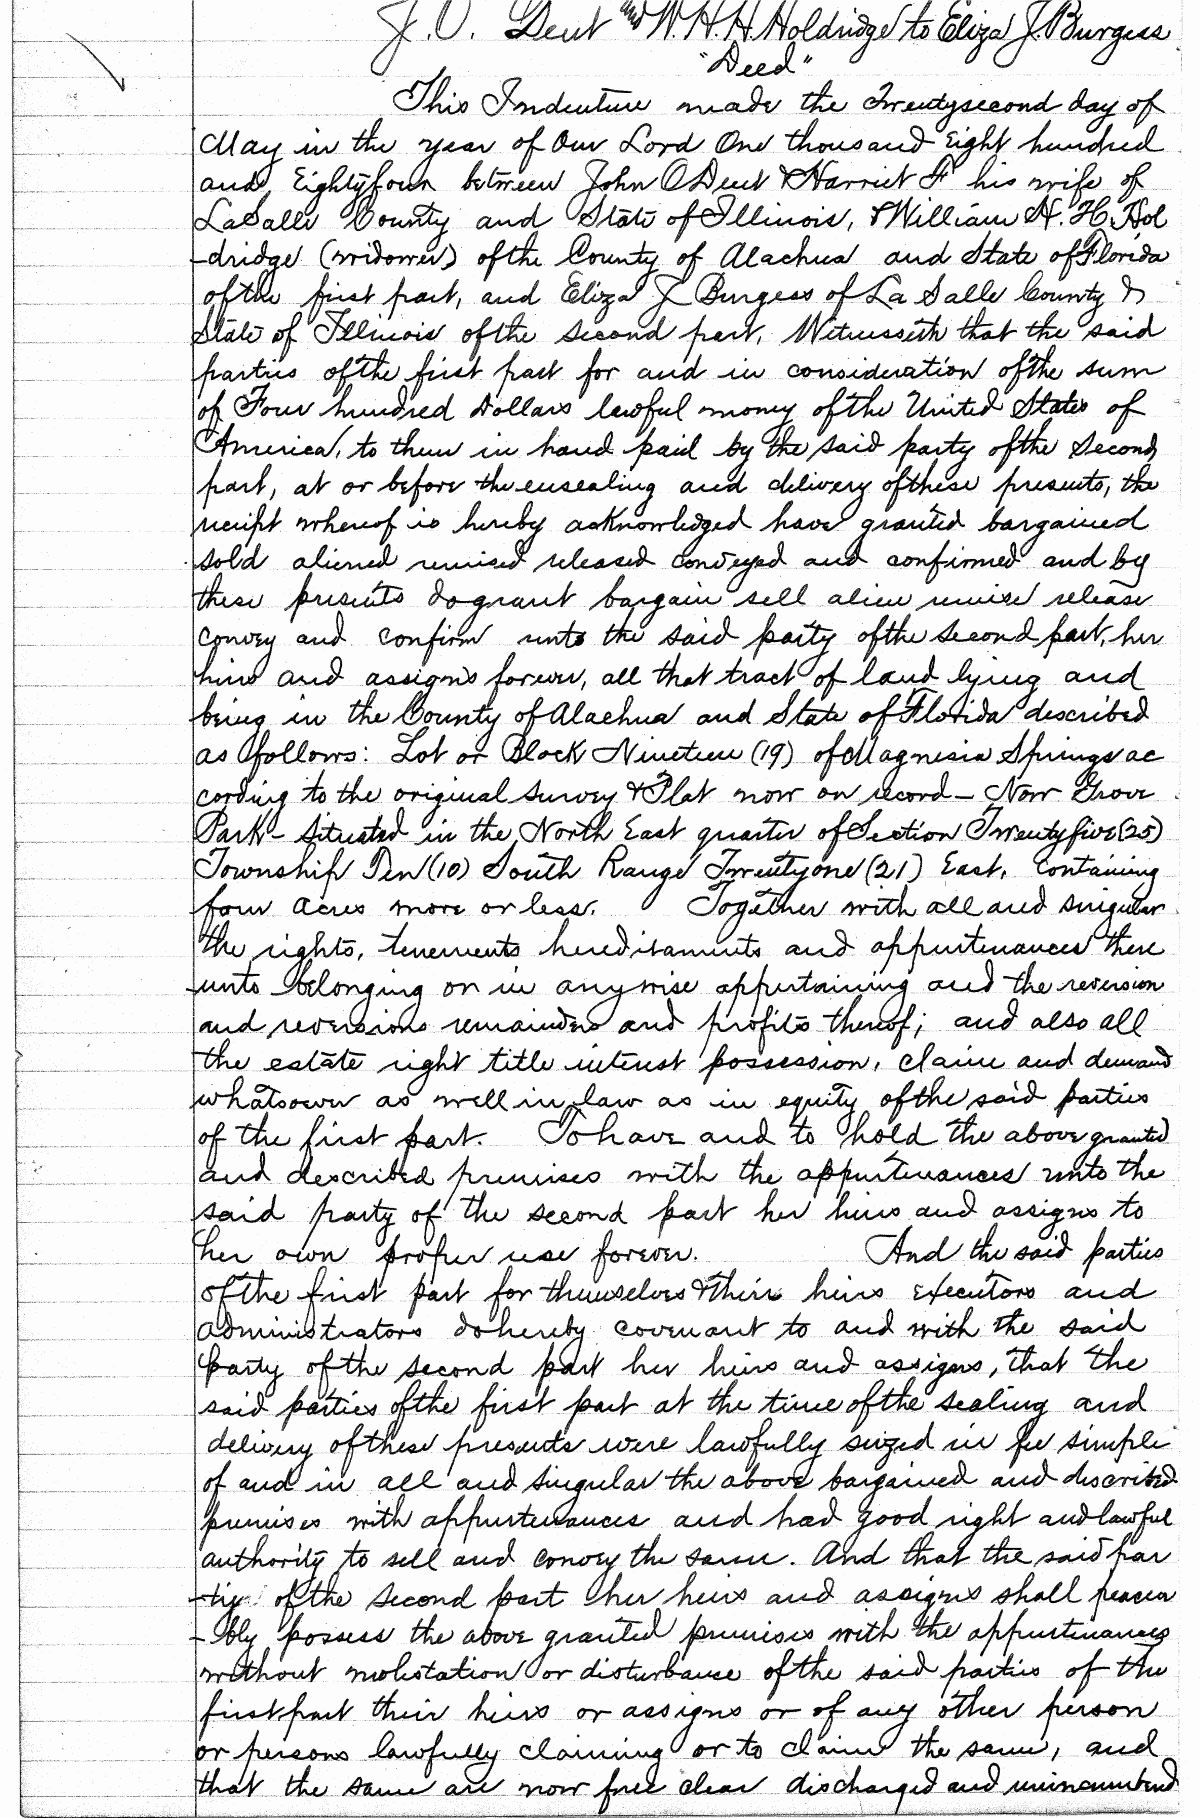 J. O. Dent and W. H. H. Holdridge to Eliza J. Burgess
"Deed"
This Indenture made the Twentysecond day of
May in the year of Our Lord One thousand Eight hundred
and Eightyfour between John O Dent & Harriet F his wife of
LaSalle County and State of Illinois, & William H. H. Hol
-dridge (widower) of the County of Alachua and State of Florida
of the first part, and Eliza J Burgess of La Salle County &
State of Illinois of the second part, Witnesseth that the said
parties of the first part for and in consideration of the sum
of Four hundred Dollars lawful money of the United States of
America, to them in hand paid by the said party of the Second
part, at or before the ensealing and delivery of these presents, the
receipt whereof is hereby acknowledged have granted bargained
sold aliened remised released conveyed and confirmed and by
these presents do grant bargain sell alien remise release
convey and confirm unto the said party of the second part, her
heirs and assigns forever, all that tract of land lying and
being in the County of Alachua and State of Florida described
as follows: Lot or Block Nineteen (19) of Magnesia Springs ac
cording to the original survey & Plat now on record - Now Grove
Park - situated in the North East quarter of Section Twentyfive (25)
Township Ten (10) South Range Twentyone (21) East, containing
four acres more or less. Together with all and singular
the rights, tenements hereditaments and appurtenances there
unto belonging or in anywise appertaining and the reversion
and reversions remainders and profits thereof; and also all
the estate right title interest possession, claim and demand
whatsoever as well in law as in equity of the said parties
of the first part. To have and to hold the above granted
and described premises with the appurtenances unto the
said party of the second part her heirs and assigns to
her own proper use forever. And the said parties
of the first part for themselves & their heirs executors and
administrators do hereby covenant to and with the said
party of the second part her heirs and assigns, that the
said parties of the first part at the time of the sealing and
delivery of these presents were lawfully seized in fee simple
of and in all and singular the above bargained and described
premises with appurtenances and had good right and lawful
authority to sell and convey the same. And that the said par
-ty of the second part her heirs and assigns shall peacea
-bly possess the above granted premises with the appurtenances
without molestation or disturbance of the said parties of the
first part their heirs or assigns or of any other person
or persons lawfully claiming or to claim the same, and
that the same are now free clear discharged and unincumbered